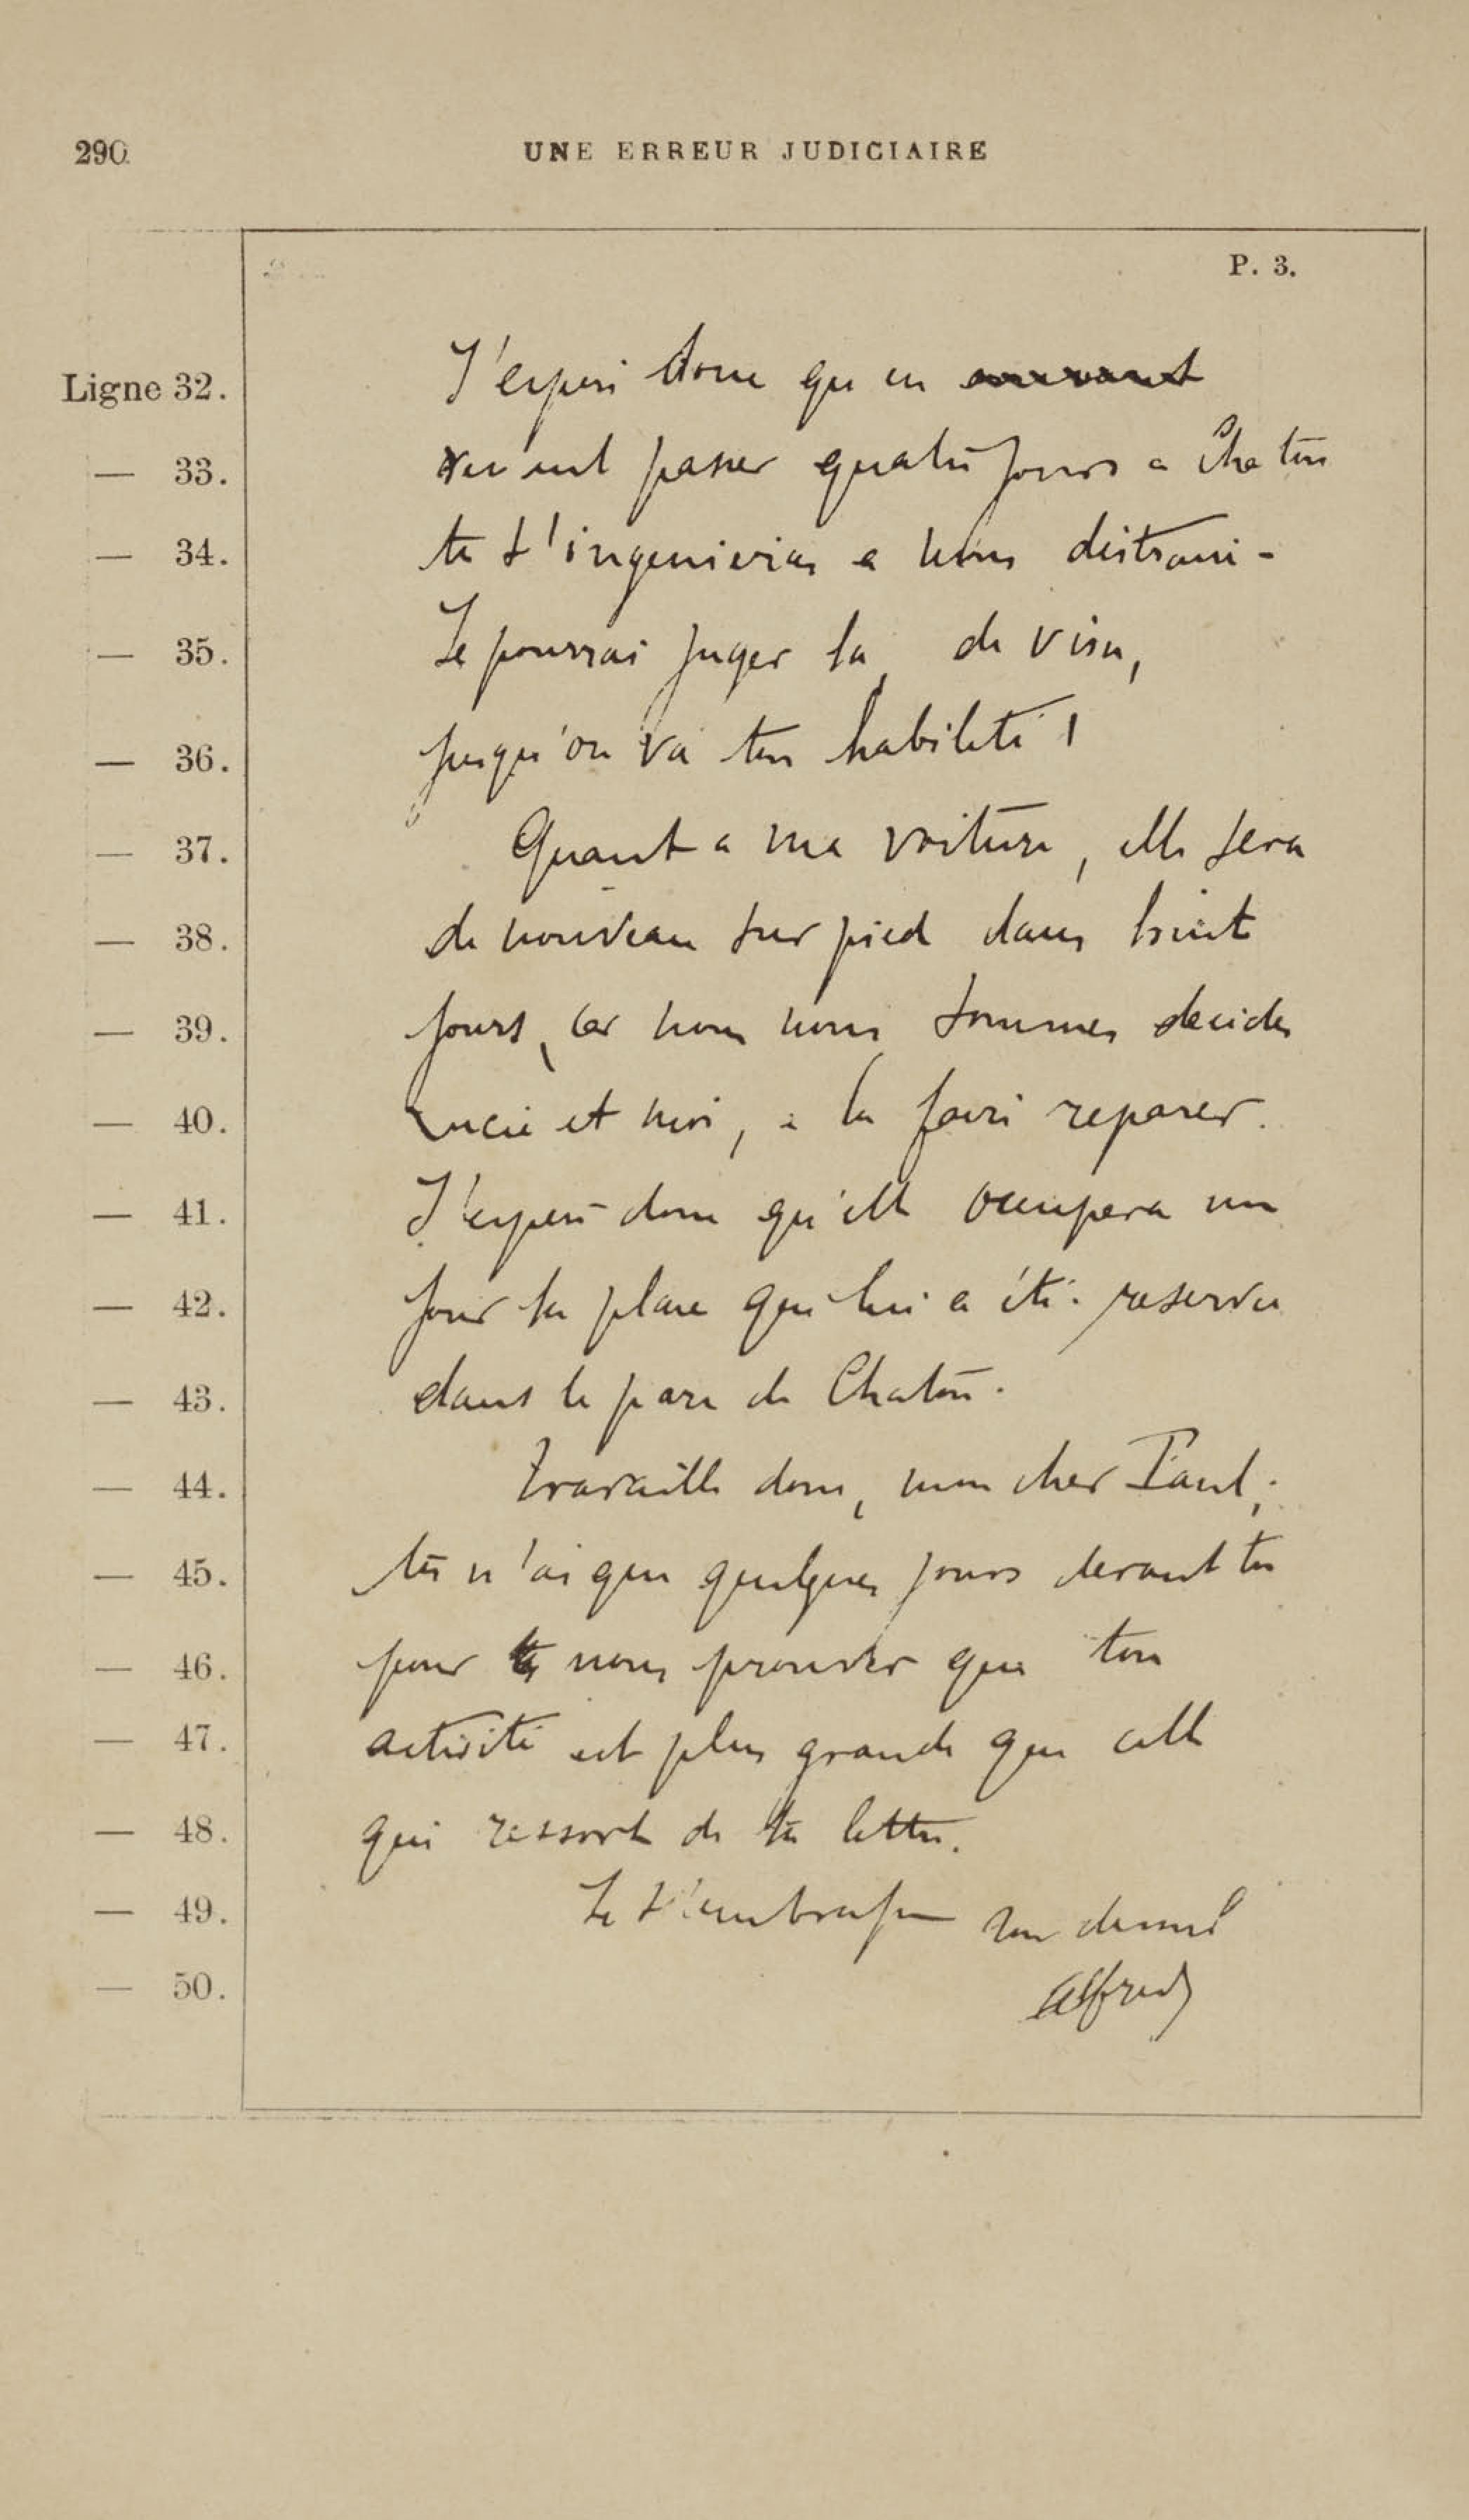 290
UNE ERREUR JUDICIAIRE
P. 3.
Ligne 32. J'espère donc qu'en
— 33. venant passer quatre jours a Chatou
— 34. tu t'ingenieras a nous distraire -
— 35. Je pourrai juger la, de visu,
— 36. jusqu'ou va ton habileté !
— 37. Quant a ma voiture, elle sera
— 38. de nouveau sur pied dans huit
— 39. jours, car nous nous sommes decides
— 40. Lucie et moi, à la faire reparer.
— 41. J'espère donc qu'elle occupera un
— 42. jour la place qui lui a été reservee
— 43. dans le parc de Chatou.
— 44. Travaille donc, mon cher Paul,
— 45. tu n'as que quelques jours devant toi
— 46. pour nous prouver que ton
— 47. activité est plus grande que celle
— 48. qui ressort de ta lettre.
— 49. Je t'embrasse
— 50. Alfred